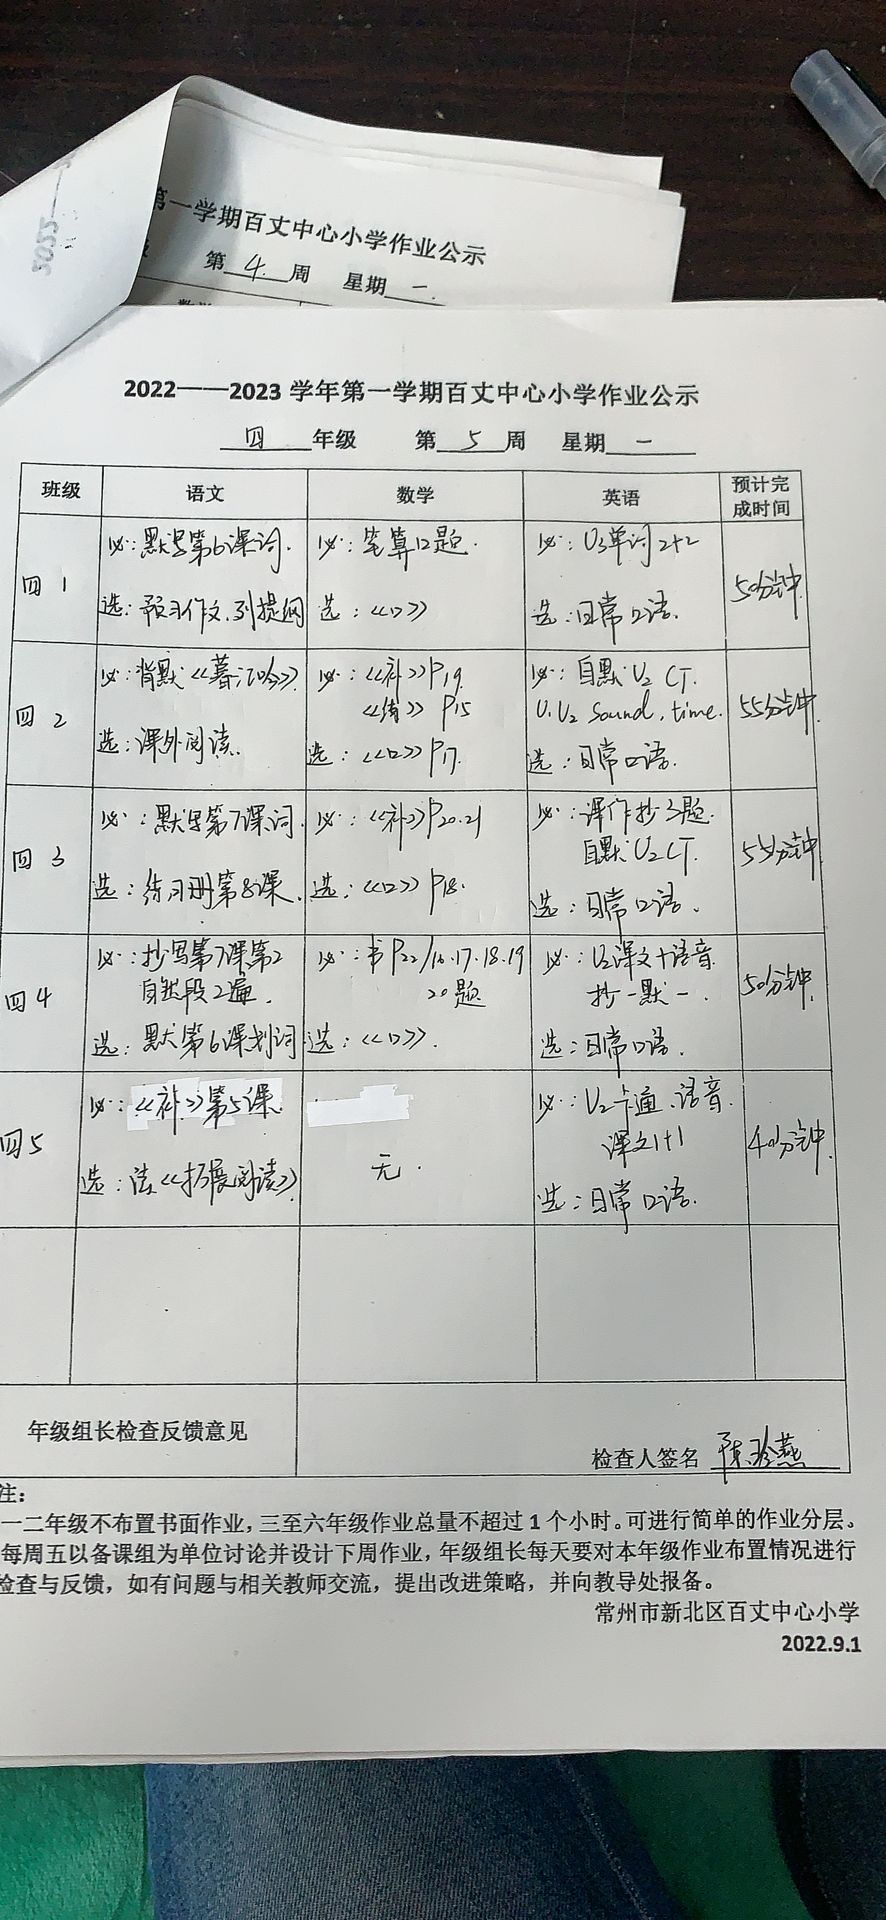 2022——2
第一学期百丈中心小学作业公示
级 第 4 周 星期 一
2022——2023 学年第一学期百丈中心小学作业公示
四 年级 第 5 周 星期 一
班级 语文 数学 英语 预计完
成时间
四 1 必:默写第6课词. 必:笔算12题. 必:U3单词2+2 50分钟.
选:预习作文.列提纲 选:《口》 选:日常口语.
四 2 必:背默《暮江吟》 必:《补》P19 必:自默U2 CT. 55分钟.
《练》P15 U1U2 sound, time.
选:课外阅读. 选:《口》P17. 选:日常口语.
四 3 必:默写第7课词. 必:《补》P20.21 必:课作抄3题. 55分钟
自默U2CT.
选:练习册第8课. 选:《口》P18. 选:日常口语.
四4 必:抄写第7课第2 必:书P22/16.17.18.19 必:U2课文+语音 50分钟.
自然段2遍. 20题 抄一默一.
选:默第6课划词 选:《口》. 选:日常口语.
四5 必:《补》第5课. 无. 必:U2卡通.语音. 40分钟.
课文1+1
选:读《拓展阅读》 选:日常口语.
年级组长检查反馈意见 检查人签名 陈珍燕
注:
一二年级不布置书面作业,三至六年级作业总量不超过 1 个小时。可进行简单的作业分层。
每周五以备课组为单位讨论并设计下周作业,年级组长每天要对本年级作业布置情况进行
检查与反馈,如有问题与相关教师交流,提出改进策略,并向教导处报备。
常州市新北区百丈中心小学
2022.9.1